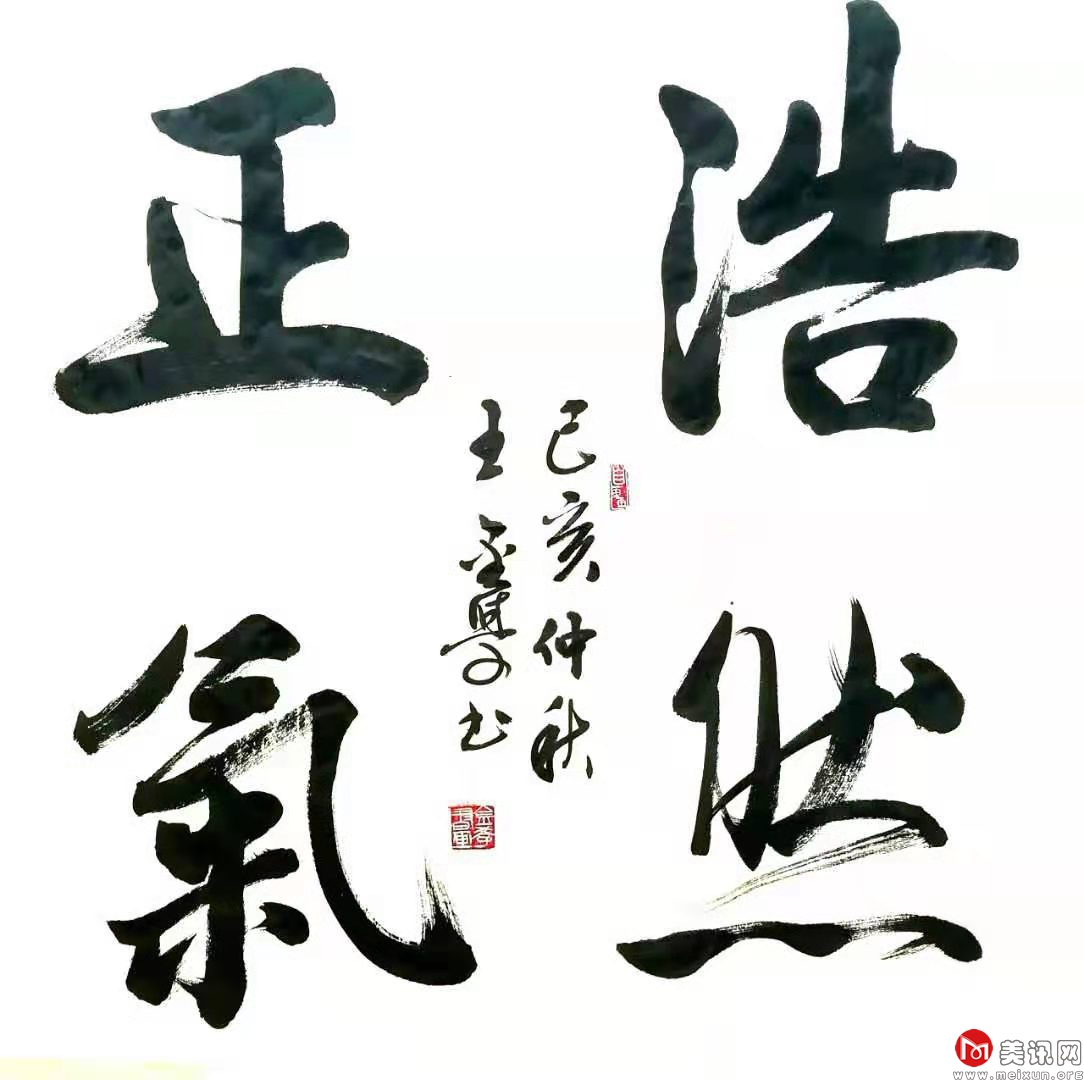 浩然
正氣
己亥仲秋
王金學书
美讯网
www.meixun.org